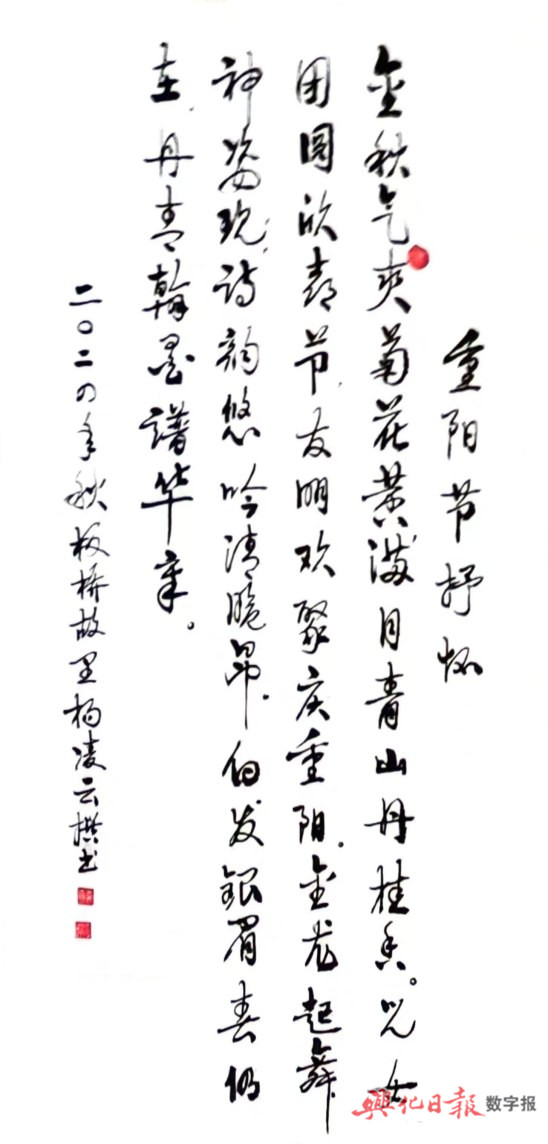 重阳节抒怀
金秋气爽菊花黄满目青山丹桂香。儿女
团圆欣节,友朋欢聚庆重阳.金龙起舞
神姿现,诗韵悠吟清脆昂.白发银眉春仍
在,丹青翰墨谱华章。
二〇二四年秋板桥故里杨凌云撰书
興化日報 数字报